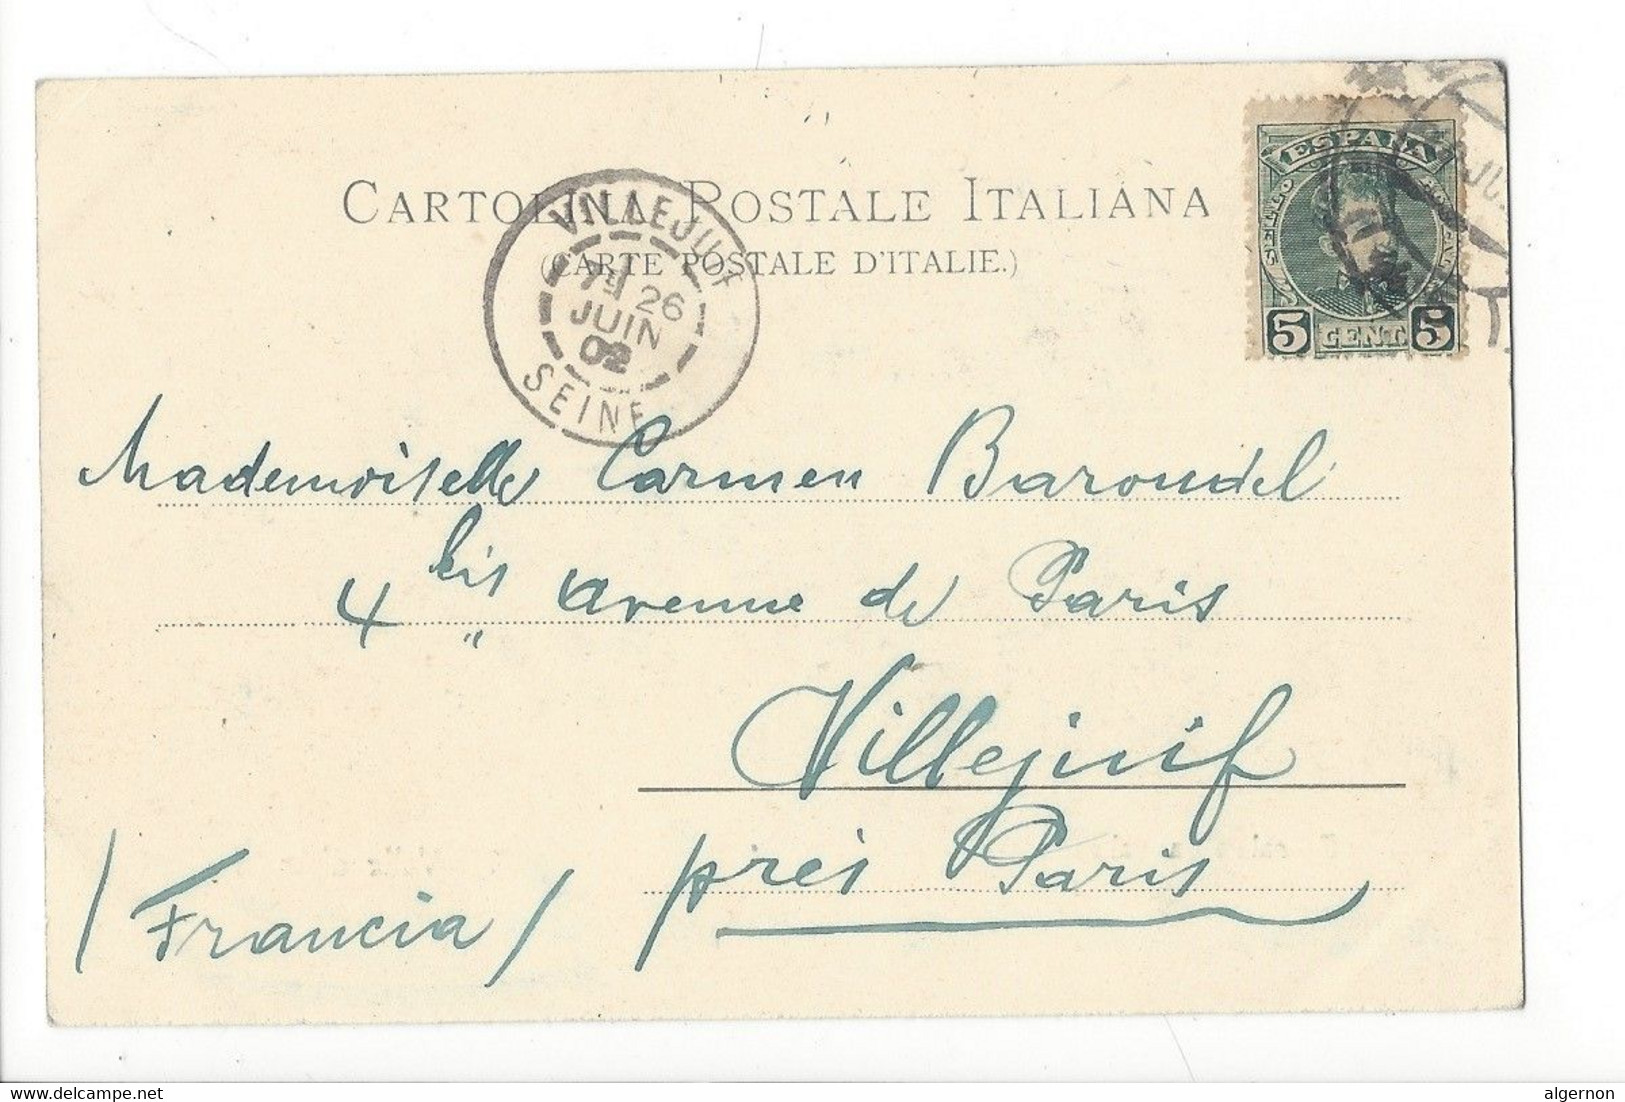 CARTOLINA POSTALE ITALIANA
(CARTE POSTALE D'ITALIE.)
VILLEJUIF
7E 26
JUIN
02
SEINE
ESPAÑA
5 CENT. 5
Mademoiselle Carmen Baroudel
4 bis avenue de Paris
Villejuif
près Paris
/ Francia /
https://www.delcampe.net
algernon